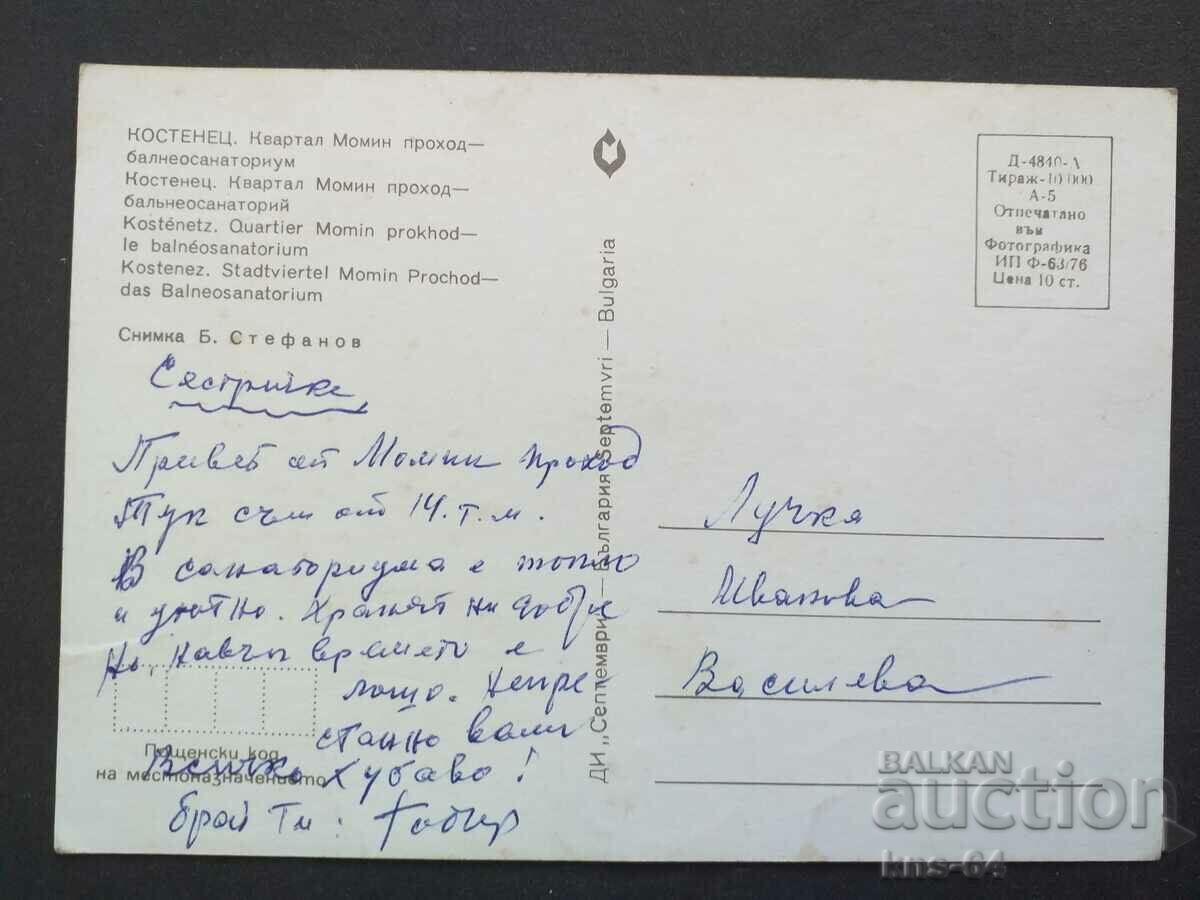 КОСТЕНЕЦ. Квартал Момин проход—
балнеосанаториум
Костенец. Квартал Момин проход—
бальнеосанаторий
Kosténetz. Quartier Momin prokhod—
le balnéosanatorium
Kostenez. Stadtviertel Momin Prochod—
das Balneosanatorium
Снимка Б. Стефанов
Сястричке
Привет от Момин проход
Тук съм от 14. т. м.
В санаториума е топло
и уютно. Хранят ни добре
Но, навън времето е
лошо. Непре
станно вали
Всичко хубаво!
брат Ти:
Пощенски код
на местоназначението
ДИ „Септември — България Septemvri — Bulgaria
Д-4840-А
Тираж-10 000
А-5
Отпечатано
във
Фотографика
ИП Ф-63/76
Цена 10 ст.
Лучка
Иванова
Василева
BALKAN
auction
kns-64